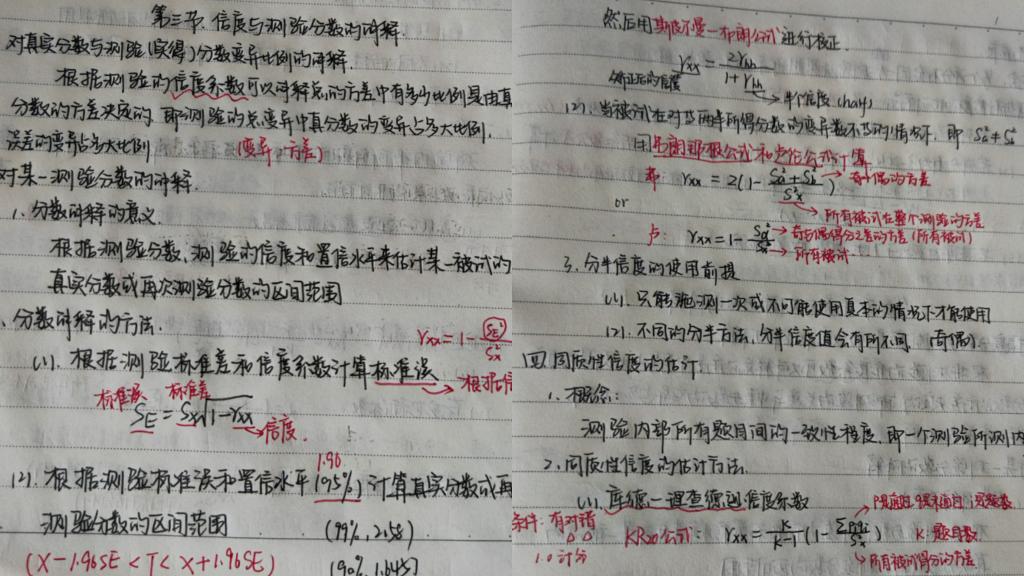 第三节 信度与测验分数的解释
对真实分数与测验(实得)分数变异比例的解释
根据测验的信度系数可以解释总的方差中有多少比例是由真
分数的方差决定的,即测验的总变异中真分数的变异占多大比例,
误差的变异占多大比例 (变异:方差)
对某一测验分数的解释
1. 分数解释的意义
根据测验分数、测验的信度和置信水平来估计某一被试的
真实分数或再次测验分数的区间范围
、分数解释的方法.
rxx = 1 - SE²/Sx²
(1). 根据测验标准差和信度系数计算标准误 → 根据信
标准误 标准差
SE = Sx√1-rxx → 信度.
1.96
(2). 根据测验标准误和置信水平(95%)计算真实分数或再
测验分数的区间范围 (99%, 2.58)
(X-1.96SE < T < X+1.96SE) (90%, 1.645)
然后用斯皮尔曼-布朗公式进行校正.
rxx = 2rhh / 1+rhh
矫正后的信度 → 半个信度 (half)
(2). 当被试在对等两半所得分数的变异数不等的情况下,即 Sa²≠Sb²
用弗朗那根公式和卢伦公式计算
弗 rxx = 2(1 - Sa²+Sb² / Sx²) → 奇、偶的方差
→ 所有被试在整个测验的方差
or
卢: rxx = 1 - Sd²/Sx² → 奇与偶得分之差的方差(所有被试)
→ 所有被试
3. 分半信度的使用前提
(1). 只能施测一次或不可能使用复本的情况下才能使用
(2). 不同的分半方法,分半信度值会有所不同.(奇偶)
四 同质性信度的估计
1. 概念:
测验内部所有题目间的一致性程度,即一个测验所测内
2. 同质性信度的估计方法.
(1). 库德-理查德逊信度系数
条件:有对错
1.0 计分
KR20公式: rxx = K/K-1 (1 - Σpiqi/Sx²)
K:题目数
→ 所有被试得分的方差